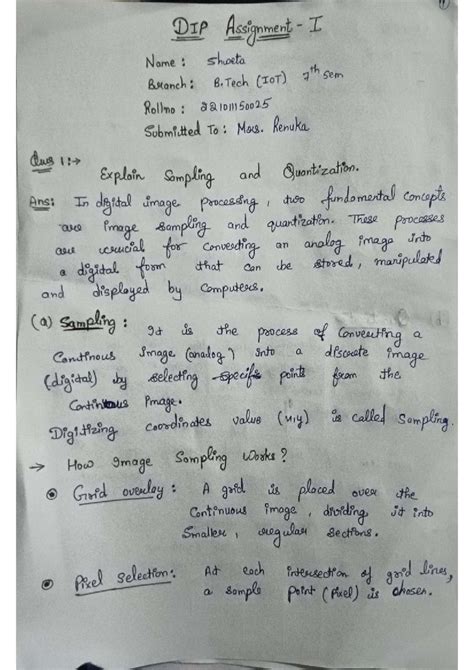 DIP Assignment - I
Name : Shweta
Branch : B.Tech (IoT) 7th sem
Rollno :
Submitted To : Mrs. Renuka
Ques 1:→
Explain Sampling and Quantization.
Ans: In digital image processing, two fundamental concepts
are image sampling and quantization. These processes
are crucial for converting an analog image into
a digital form that can be stored, manipulated
and displayed by computers.
(a) Sampling : It is the process of converting a
Continous Image (analog) into a discrete image
(digital) by selecting specific points from the
Continous Image.
Digitizing coordinates value (x,y) is called Sampling.
→ How Image Sampling Works ?
Grid overlay : A grid is placed over the
Continuous image, dividing it into
Smaller, regular sections.
Pixel Selection: At each intersection of grid lines,
a sample point (Pixel) is chosen.